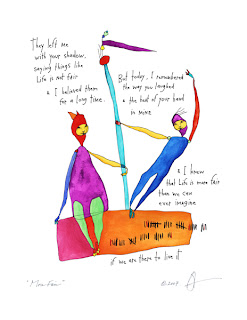 They left me
with your shadow,
saying things like
Life is not fair
& I believed them
for a long time.
But today, I remembered
the way you laughed
& the heat of your hand
in mine
& I knew
that Life is more fair
than we can
ever imagine
if we are there to live it
"More Fair"
©2009